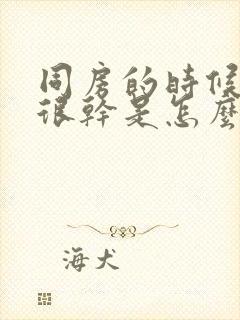 同房的時候
很幹是怎麼
海犬